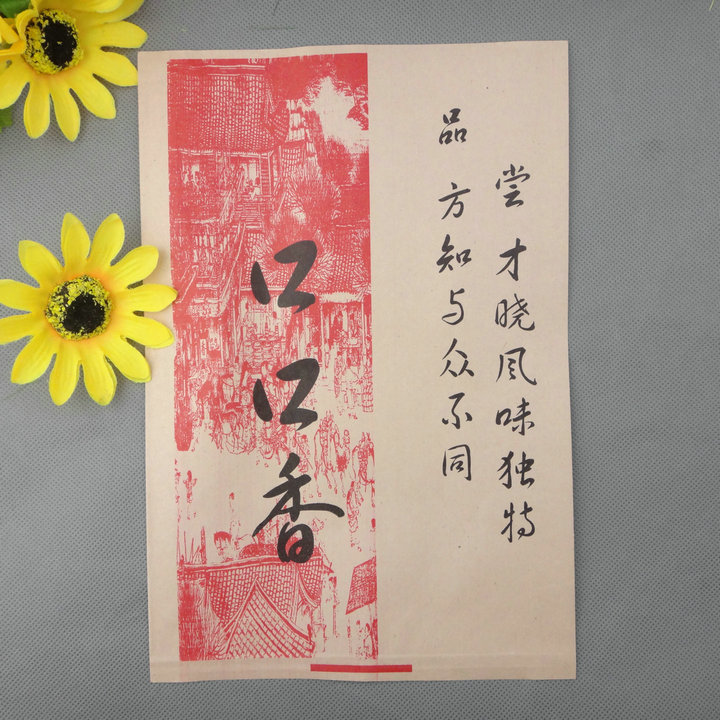 尝才晓风味独特
品方知与众不同
口口香